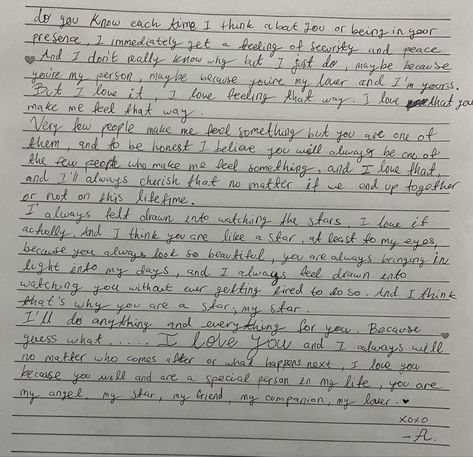 do you know each time I think abat you or being in your
presence, I immediately get a feeling of security and peace
And I don't really know why but I just do, maybe because
you're my person, maybe because you're my lover and I'm yours.
But I love it, I love feeling that way. I love that you
make me feel that way.
Very few people make me feel something but you are one of
them, and to be honest I believe you will always be one of
the few people who make me feel something, and I love that,
and I'll always cherish that no matter if we end up together
or not on this lifetime.
I always felt drawn into watching the stars, I love it
actually. And I think you are like a star, at least to my eyes,
because you always look so beautiful, you are always bringing in
light into my days, and I always feel drawn into
watching you without ever getting tired to do so. And I think
that's why you are a star; my star.
I'll do anything and everything for you. Because
guess what..... I love you and I always will
no matter who comes after or what happens next, I love you
because you will and are a special person in my life, you are
my angel, my star, my friend, my companion, my lover.
xoxo
-A.